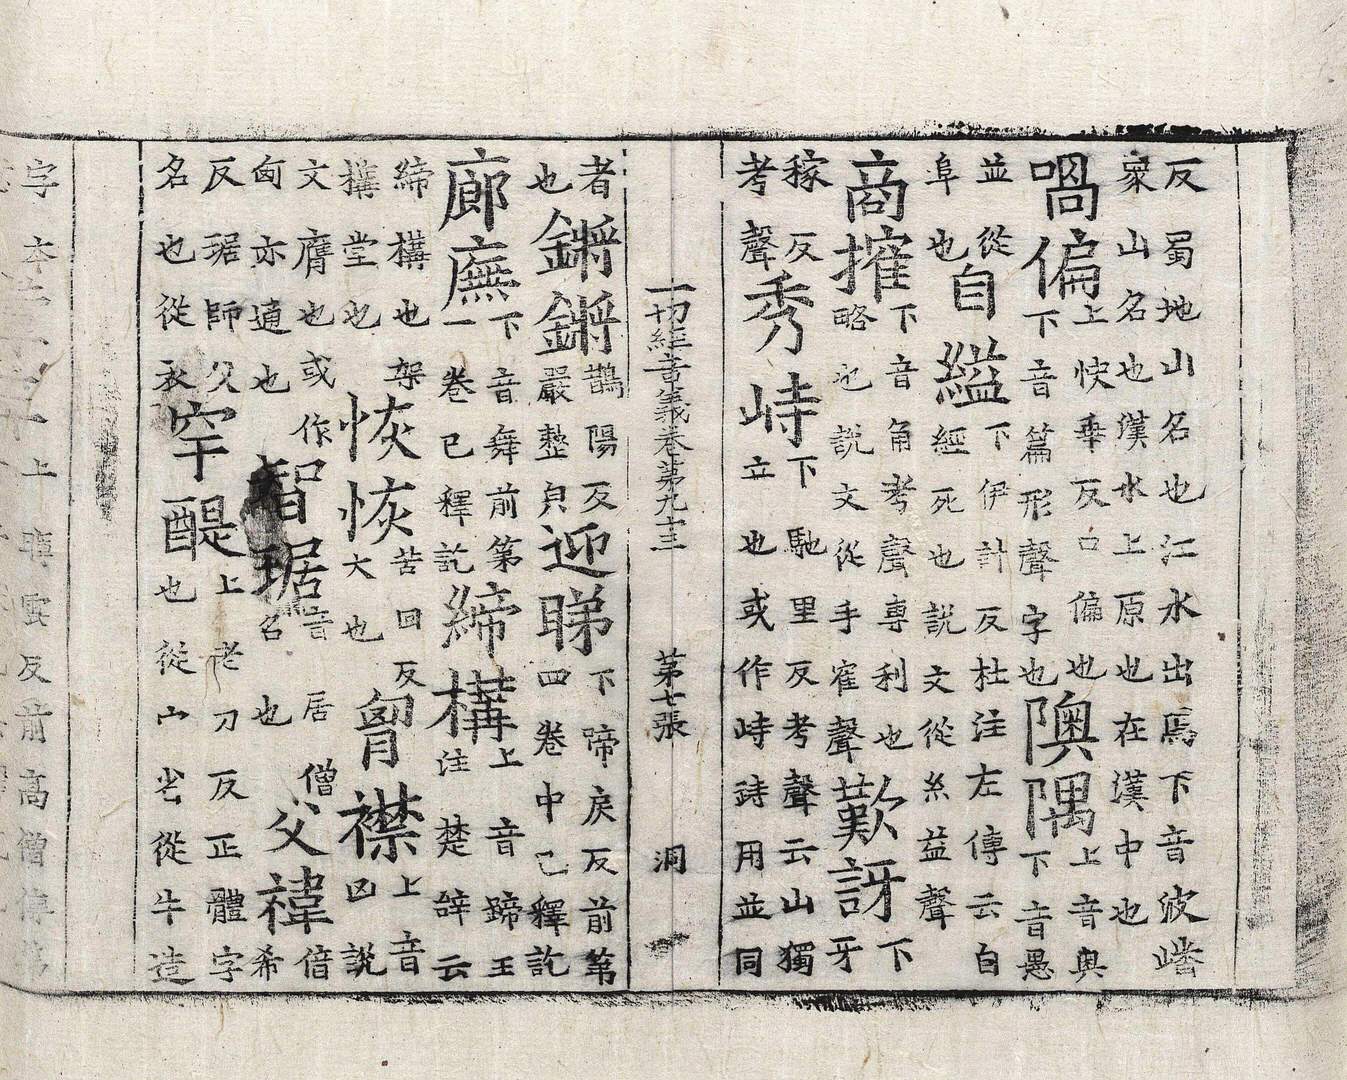 反蜀地山名也江水出焉下音波嶓冢山名也漢水上原也在漢中也
喎偏上快乖反口偏也下音篇形聲字也隩隅上音奥下音愚
並從阜也自縊下伊計反杜注左傳云自經死也說文從糸益聲
商搉下音角考聲專利也略也說文從手寉聲歎訝下牙
稼反考聲秀峙下馳里反考聲云山獨立也或作峙詩用並同
一切經音義卷第九十三 第七張 洞
者也鏘鏘鵲陽反嚴整皃迎睇下啼戾反前第四卷中已釋訖
廊廡下音舞前第一卷已釋訖締構上音蹄王注楚辞云
締構也架構堂也恢恢苦回反大也胷襟上音凶說
文膺也或作匈亦通也智琚音居僧名也父褘倍希
反琚師父名也從衣窂醍上老刀反正體字也從宀從牛造
字 上 雲反前高僧傳第